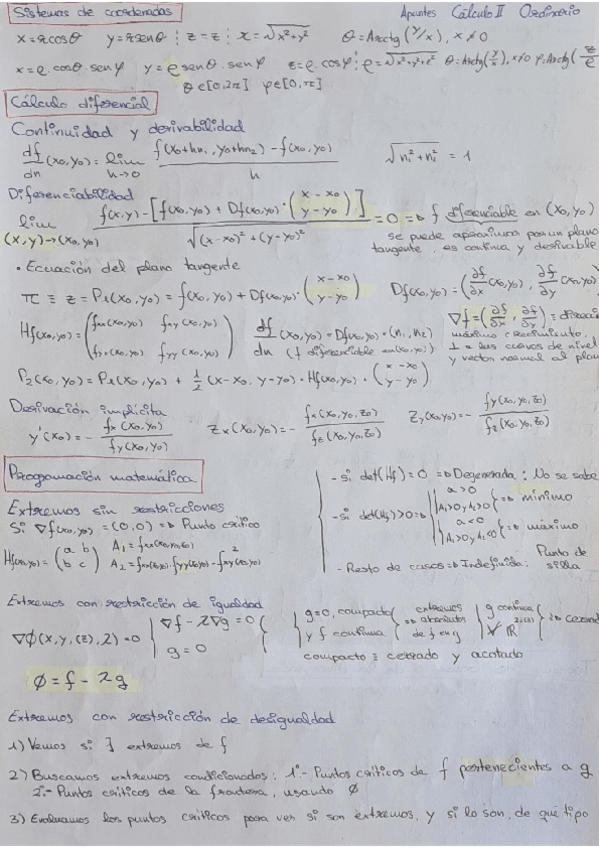 Sistemas de coordenadas
Apuntes Cálculo II Ordinario
x = r cosθ   y = r senθ ; z = z ; r = √(x²+y²)   θ = Arctg (y/x), x ≠ 0
x = ρ cosθ senφ   y = ρ senθ senφ   z = ρ cosφ ; ρ = √(x²+y²+z²)   θ = Arctg(y/x), x ≠ 0
θ ∈ [0, 2π]   φ ∈ [0, π]
Cálculo diferencial
Continuidad y derivabilidad
df/dn (x₀, y₀) = lim h→0 (f(x₀+hn₁, y₀+hn₂) - f(x₀, y₀)) / h
Diferenciabilidad
lim (x,y)→(x₀,y₀) (f(x,y) - [f(x₀,y₀) + Df(x₀,y₀)·(x-x₀ y-y₀)]) / √((x-x₀)²+(y-y₀)²) = 0 ⇒ f diferenciable en (x₀, y₀)
se puede aproximar por un plano
tangente, es continua y derivable
• Ecuación del plano tangente
π ≡ z = P₁(x₀, y₀) = f(x₀, y₀) + Df(x₀,y₀)·(x-x₀ y-y₀)   Df(x₀,y₀) = (∂f/∂x (x₀,y₀), ∂f/∂y (x₀,y₀))
Hf(x₀,y₀) = (fxx(x₀,y₀) fxy(x₀,y₀) fyx(x₀,y₀) fyy(x₀,y₀))   df/dn (x₀,y₀) = Df(x₀,y₀)·(n₁, n₂)
(f diferenciable en (x₀,y₀))
∇f = (∂f/∂x, ∂f/∂y) ≡
máximo crecimiento,
⊥ a las curvas de nivel
y vector normal al plano
P₂(x₀, y₀) = P₁(x₀, y₀) + ½ (x-x₀, y-y₀)·Hf(x₀,y₀)·(x-x₀ y-y₀)
Derivación implícita
y'(x₀) = - fx(x₀,y₀) / fy(x₀,y₀)   zx(x₀,y₀) = - fx(x₀,y₀,z₀) / fz(x₀,y₀,z₀)   zy(x₀,y₀) = - fy(x₀,y₀,z₀) / fz(x₀,y₀,z₀)
Programación matemática
Extremos sin restricciones
Si ∇f(x₀,y₀) = (0,0) ⇒ Punto crítico
Hf(x₀,y₀) = (a b b c)   A₁ = fxx(x₀,y₀)
A₂ = fxx(x₀,y₀)·fyy(x₀,y₀) - fxy²(x₀,y₀)
- si det(Hf) = 0 ⇒ Degenerada : No se sabe
- si det(Hf) > 0 ⇒ a > 0 A₁>0 y A₂>0 ⇒ mínimo
a < 0 ⇒ máximo
- Resto de casos ⇒ Indefinida : Punto de silla
Extremos con restricción de igualdad
∇φ(x, y, (z), λ) = 0   ∇f - λ∇g = 0
g = 0
g=0, compacto y f continua ⇒ extremos absolutos de f en g
g continua
compacto ≡ cerrado y acotado
φ = f - λg
Extremos con restricción de desigualdad
1) Vemos si ∃ extremos de f
2) Buscamos extremos condicionados : 1º- Puntos críticos de f pertenecientes a g
2º- Puntos críticos de la frontera, usando φ
3) Evaluamos los puntos críticos para ver si son extremos, y si lo son, de qué tipo